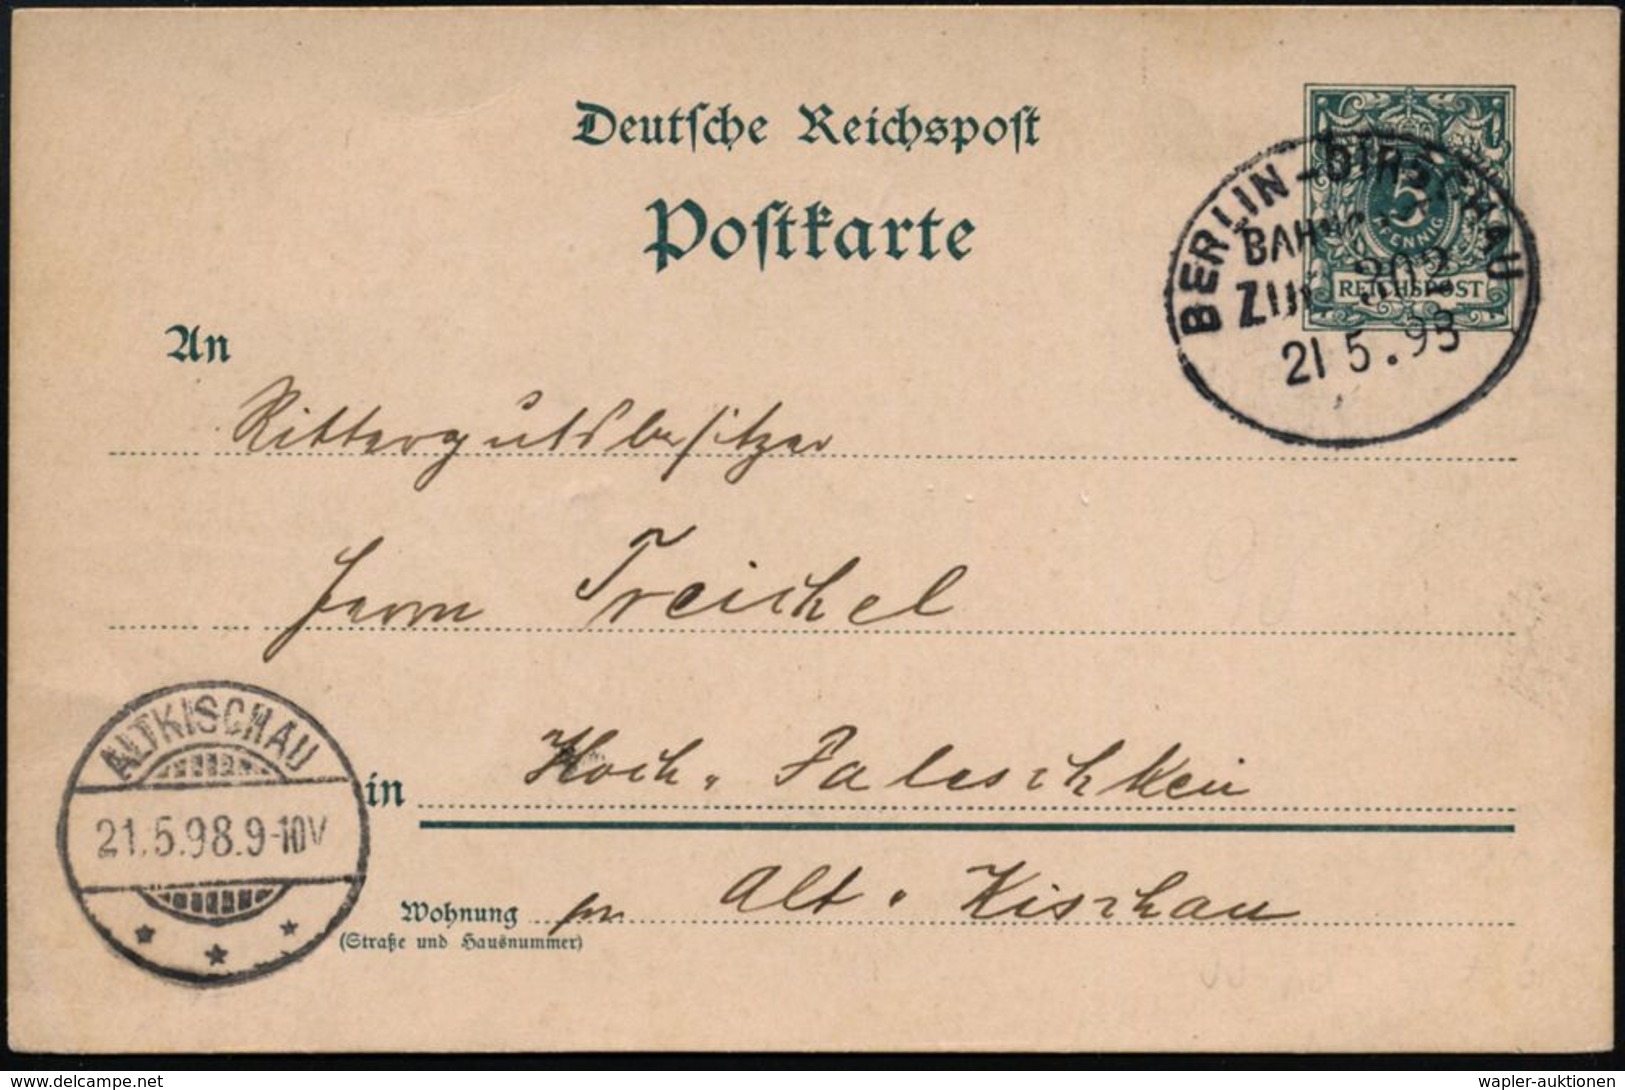 Deutsche Reichspost
Postkarte
5
PFENNIG
REICHSPOST
BERLIN-DIRSCHAU
BAHNPOST
ZUG 302
21 5.98
An
Rittergutsbesitzer
Herrn Treichel
in Hoch-Paleschken
Wohnung pr Alt-Kischau
(Straße und Hausnummer)
ALTKISCHAU
21.5.98.9-10V
wapler-auktionen